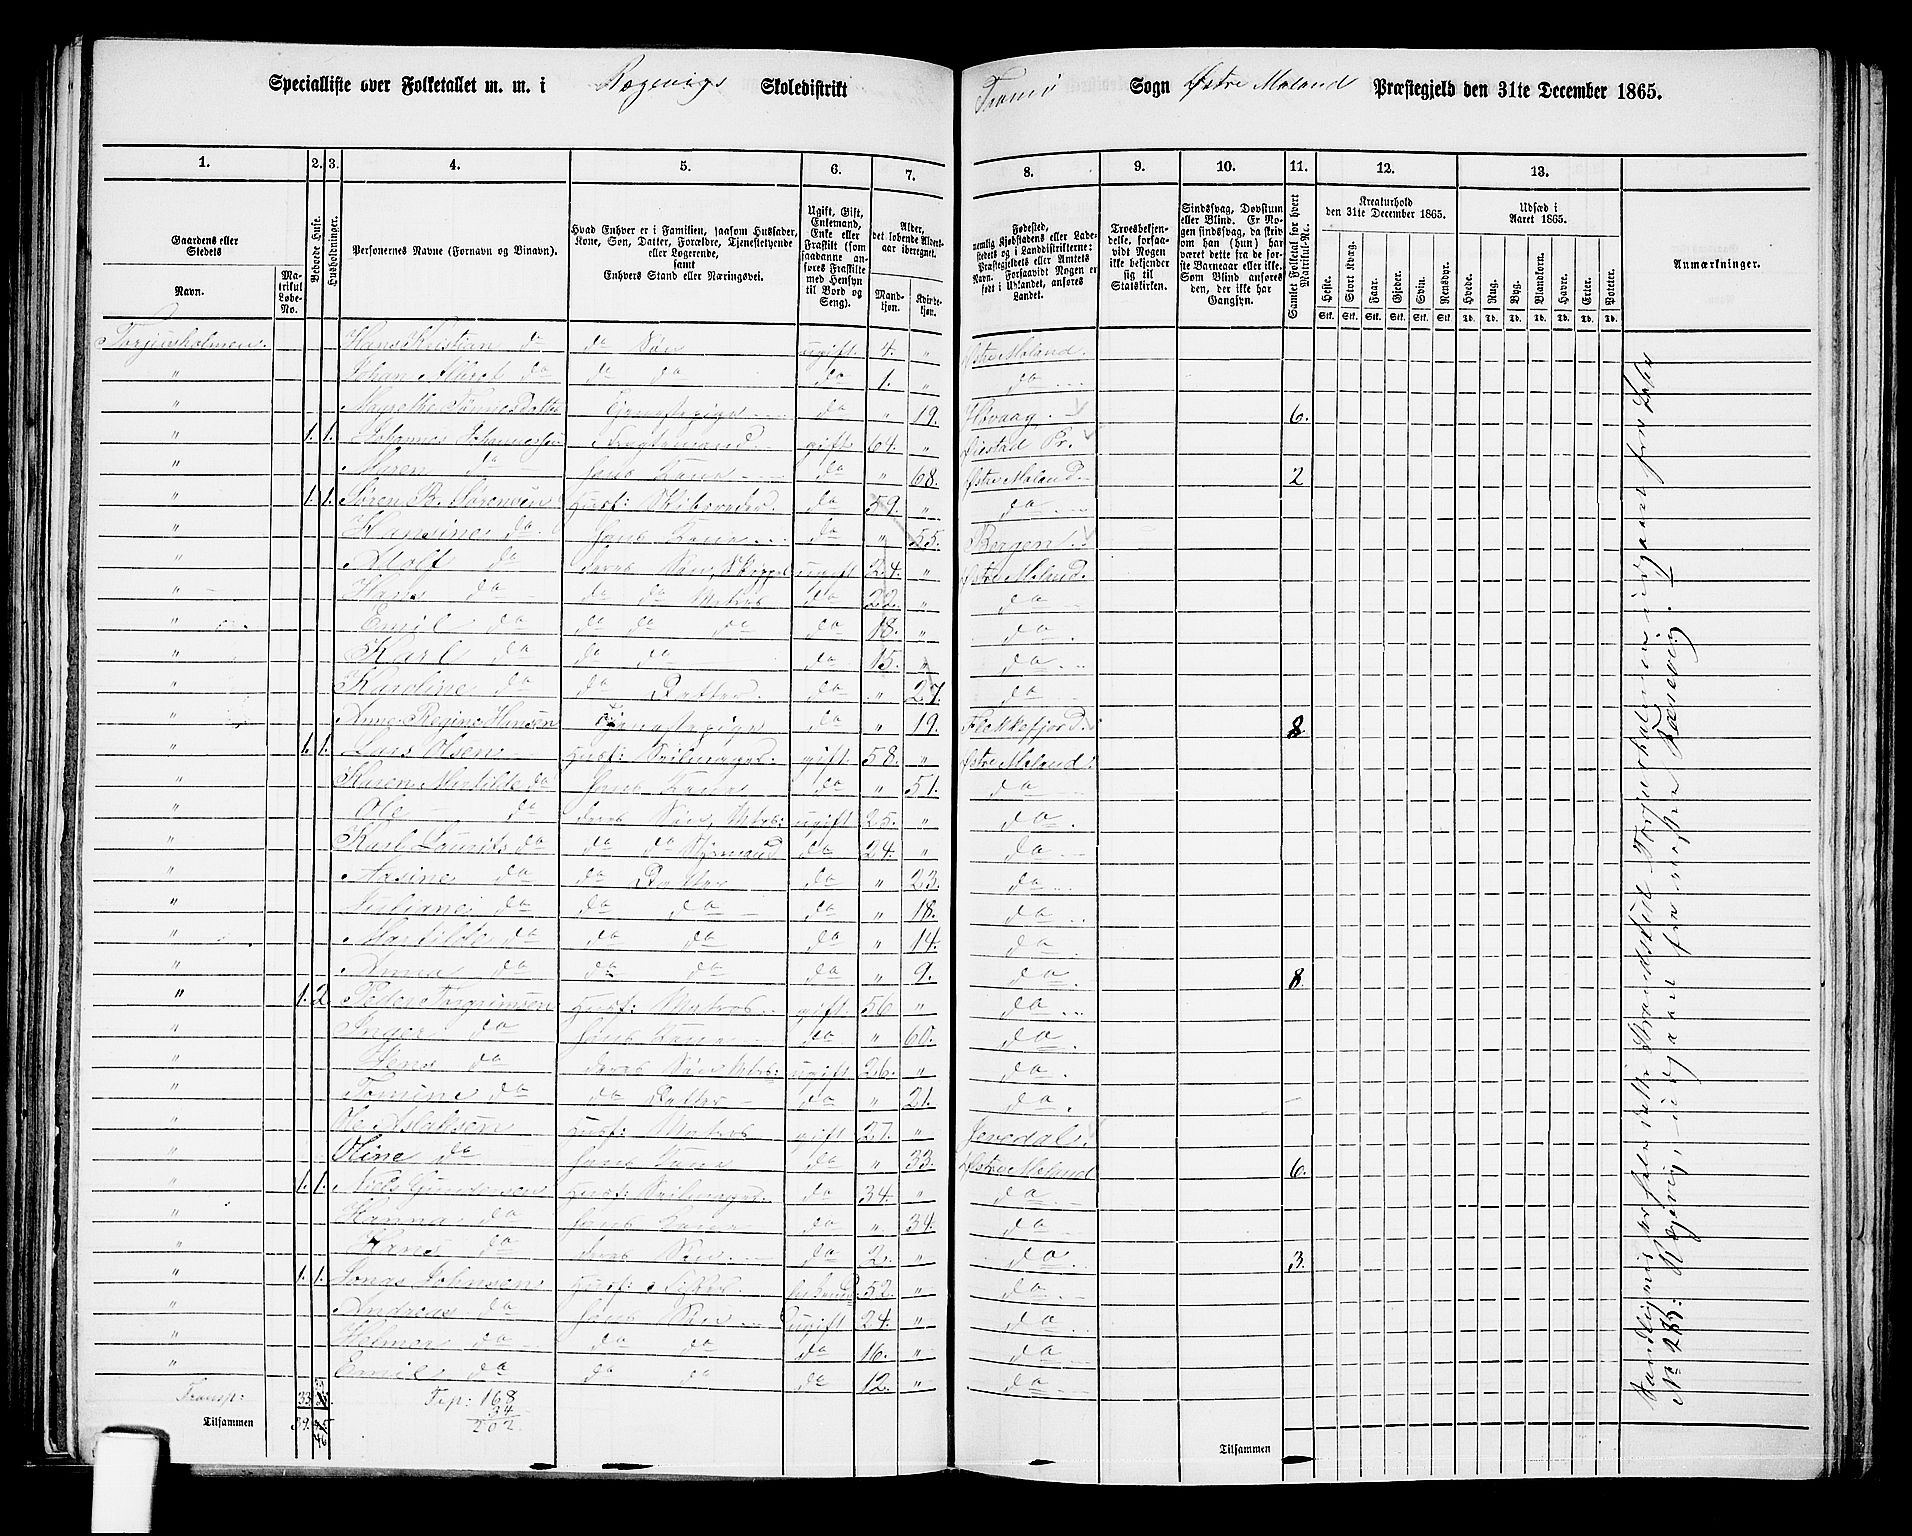 Specialliste over Folketallet m. m. i Kogevigs Skoledistrikt Tromø Sogn Østre Moland Præstegjeld den 31te December 1865.
1. 2. 3. 4. 5. 6. 7. 8. 9. 10. 11. 12. 13.
Gaardens eller Stedets
Navn.
Matrikul Løbe-No.
Beboede Huse.
Husholdninger.
Personernes Navne (Fornavn og Binavn).
Hvad Enhver er i Familien, saasom Husfader, Kone, Søn, Datter, Forældre, Tjenestetyende eller Logerende, samt Enhvers Stand eller Næringsvei.
Ugift, Gift, Enkemand, Enke eller Fraskilt (som saadanne anføres Fraskilte med Hensyn til Bord og Seng).
Alder, det løbende Aldersaar iberegnet.
Mandkjøn.
Kvindekjøn.
Fødested, nemlig Kjøbstadens eller Ladestedets og i Landdistrikterne: Præstegjeldets eller Amtets Navn. Forsaavidt Nogen er født i Udlandet, anføres Landet.
Troesbekjendelse, forsaavidt Nogen ikke bekjender sig til Statskirken.
Sindssvag, Døvstum eller Blind. Er Nogen sindssvag, da skrives om han (hun) har været dette fra de første Barneaar eller ikke. Som Blind anføres den, der ikke har Gangsyn.
Samlet Folketal for hvert Matrikul-Nr.
Kreaturhold den 31te December 1865.
Heste. Stort Kvæg. Faar. Gjeder. Svin. Rensdyr.
Udsæd i Aaret 1865.
Hvede. Rug. Byg. Blandkorn. Havre. Erter. Poteter.
Stk. Stk. Stk. Stk. Stk. Stk. Td. Td. Td. Td. Td. Td. Td.
Anmærkninger.
Torjusholmen. Hans Kristian do do Søn ugift 4. " Østre Moland.
" Johan Albert do do do do 1. " do
" Margethe Tønnesdatter Tjenestepige do " 19. Høvaag. 6.
" 1. 1. Johannes Johannessen gift 64. " Øiestad Pr.
" Maren do Hans Kone do " 68. Østre Moland. 2
" 1. 1. Søren B. Sørensen Husf: Skibsreder do 59. " do
" Hansine do Hans Kone do " 55. Bergen.
" Adolf do deres Søn, Skipper ugift 24. " Østre Moland.
" Hans do do do Matros do 22. " do
" Emil do do do do do 18. " do
" Karl do do do do 15. " do
" Karoline do do Datter. do " 27. do
" Anne Regine Hansen Tjenestepige do " 19. Flekkefjord. 8
" 1. 1. Lars Olsen Husf: Seilmager. gift 58. " Østre Moland.
" Karen Matilde do Hans Kone do " 51. do
" Ole do deres Søn, Matros: ugift 25. " do.
" Karl Laurits do do do Styrmand do 24. " do
" Aasine do do Datter do " 23. do
" Juliane do do do do " 18. do
" Matilde do do do do " 14. do
" Anna do do do do " 9. do 8.
" 1. 2. Peder Torgrimsen Husf: Matros gift 56 " do
" Inger do Hans Kone do " 60. do.
" Jens do deres Søn Matros: ugift 26. " do.
" Tomine do do Datter do " 21. do.
" Ole Aslaksen Husf: Matros gift 27. " Jevedal.
" Oline do Hans Kone do " 33. Østre Moland 6.
" 1. 1. Niels Gundersen Husf: Seilmager. do 34. " do
" Hanna do Hans Kone do " 34. do
" Hans do deres Søn. do 2. " do 3.
" 1. 1. Jonas Johnsen Husf: 52. " do
" Andreas do Hans Søn ugift 24. " do
" Helmer do do do do 16. " do
" Emil do do do do 12. " do
Transp: 33. Trp: 168
34
Tilsammen 39. 202.
Tilsammen
No 275.